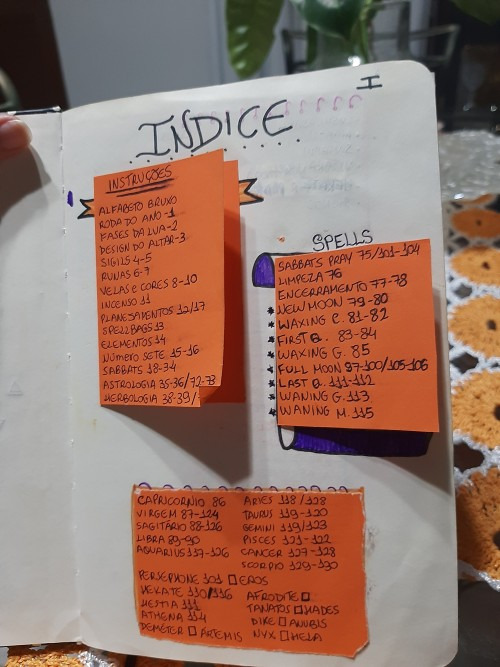 I
INDICE
INSTRUÇÕES
ALFABETO BRUXO
RODA DO ANO -1
FASES DA LUA -2
DESIGN DO ALTAR -3
SIGILS 4-5
RUNAS 6-7
VELAS e CORES 8-10
INCENSO 11
PLANEJAMENTOS 12/17
SPELLBAGS 13
ELEMENTOS 14
NÚMERO SETE 15-16
SABBATS 18-34
ASTROLOGIA 35-36/72-73
HERBOLOGIA 38-39/
SPELLS
SABBATS PRAY 75/101-104
LIMPEZA 76
ENCERRAMENTO 77-78
NEW MOON 79-80
WAXING C. 81-82
FIRST Q. 83-84
WAXING G. 85
FULL MOON 97-100/105-106
LAST Q. 111-112
WANING G. 113
WANING M. 115
CAPRICORNIO 86
VIRGEM 87-124
SAGITÁRIO 88-126
LIBRA 89-90
AQUARIUS 117-126
ARIES 118/128
TAURUS 119-120
GEMINI 119/123
PISCES 121-122
CANCER 127-128
SCORPIO 129-130
PERSEPHONE 101 □ EROS
HEKATE 110/116 AFRODITE □
HESTIA 111 TANATOS □ HADES
ATHENA 114 DIKE □ ANUBIS
DEMÉTER □ ARTEMIS NYX □ HELA